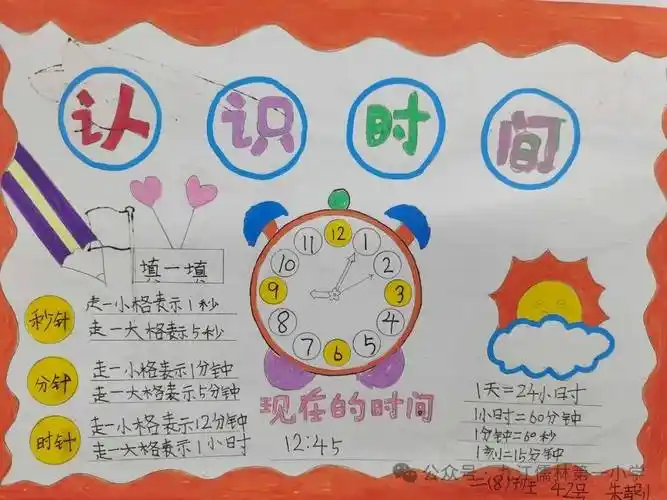 认识时间
填一填
秒针
走一小格表示1秒
走一大格表示5秒
分针
走一小格表示1分钟
走一大格表示5分钟
时针
走一小格表示12分钟
走一大格表示1小时
12
1
2
3
4
5
6
7
8
9
10
11
现在的时间
12:45
1天=24小时
1小时=60分钟
1分钟=60秒
1刻=15分钟
公众号·九江儒林第一小学
二(8)班 42号 朱